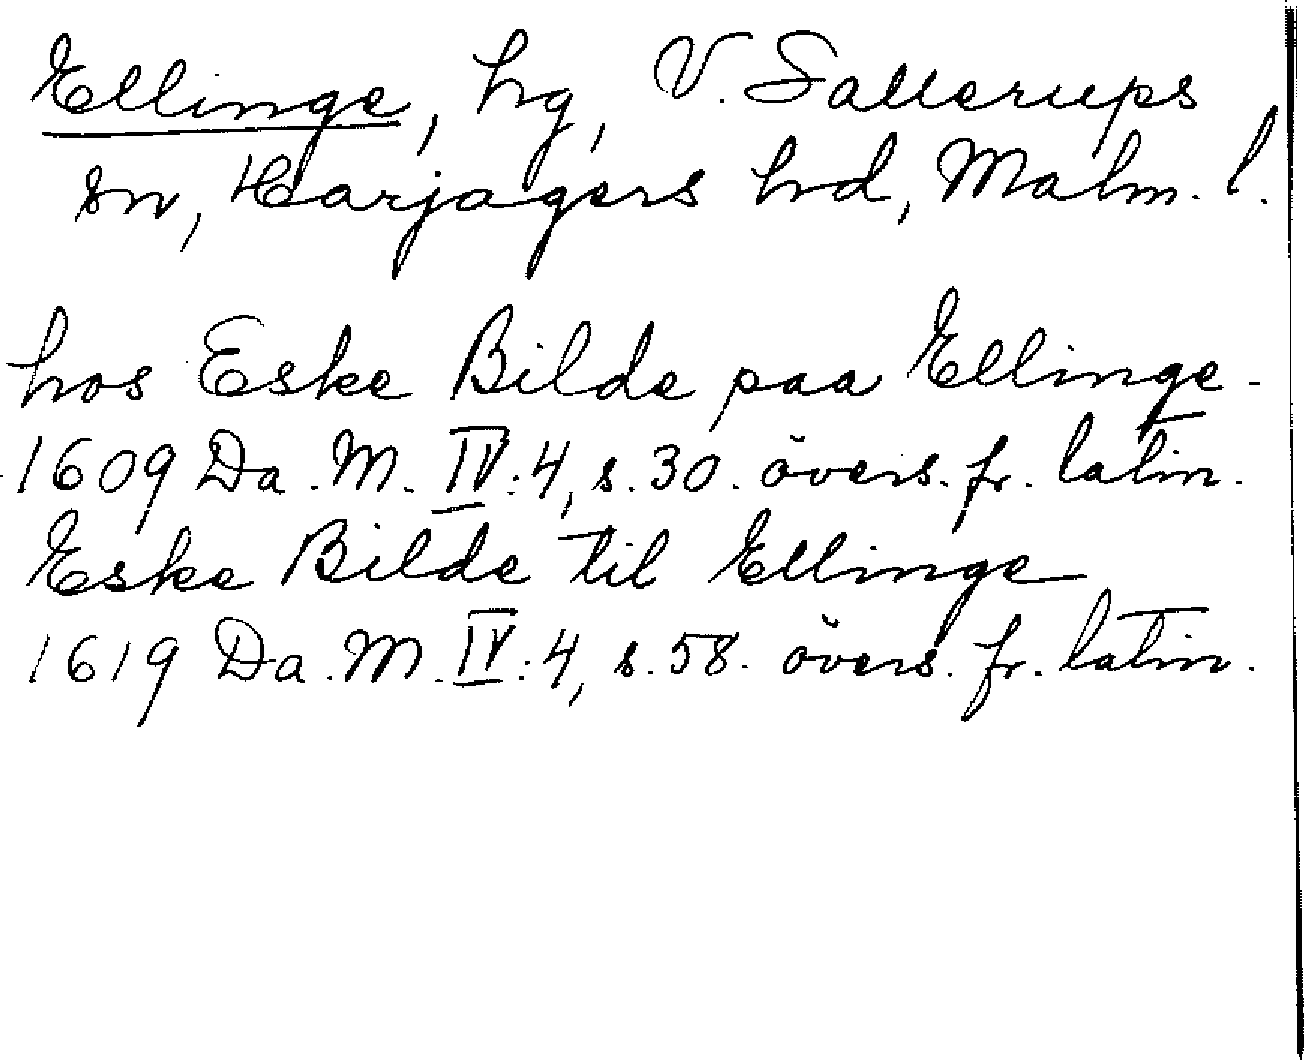 Ellinge, hg, V. Sallerups
sn, Harjagers hd, Malm. l.
hos Eske Bilde paa Ellinge -
1609 Da. M. IV: 4, s. 30. övers. fr. latin.
Eske Bilde til Ellinge
1619 Da. M. IV: 4, s. 58. övers. fr. latin.